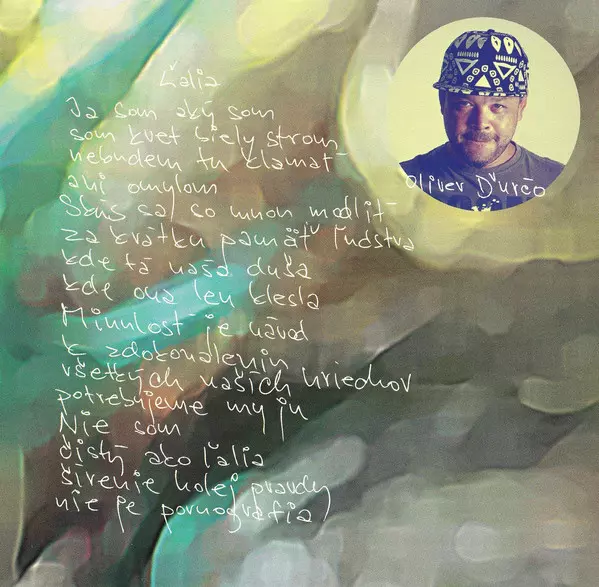 Ľalia
Ja som aký som
som kvet biely strom
nebudem tu klamať
ani omylom
Skús sa so mnou modliť
za krátku pamäť ľudstva
kde tá naša duša
kde ona len klesla
Minulosť je návod
k zdokonaleniu
všetkých našich hriechov
potrebujeme my ju
Nie som
čistý ako ľalia
šírenie holej pravdy
nie je pornografia
Oliver Ďurčo